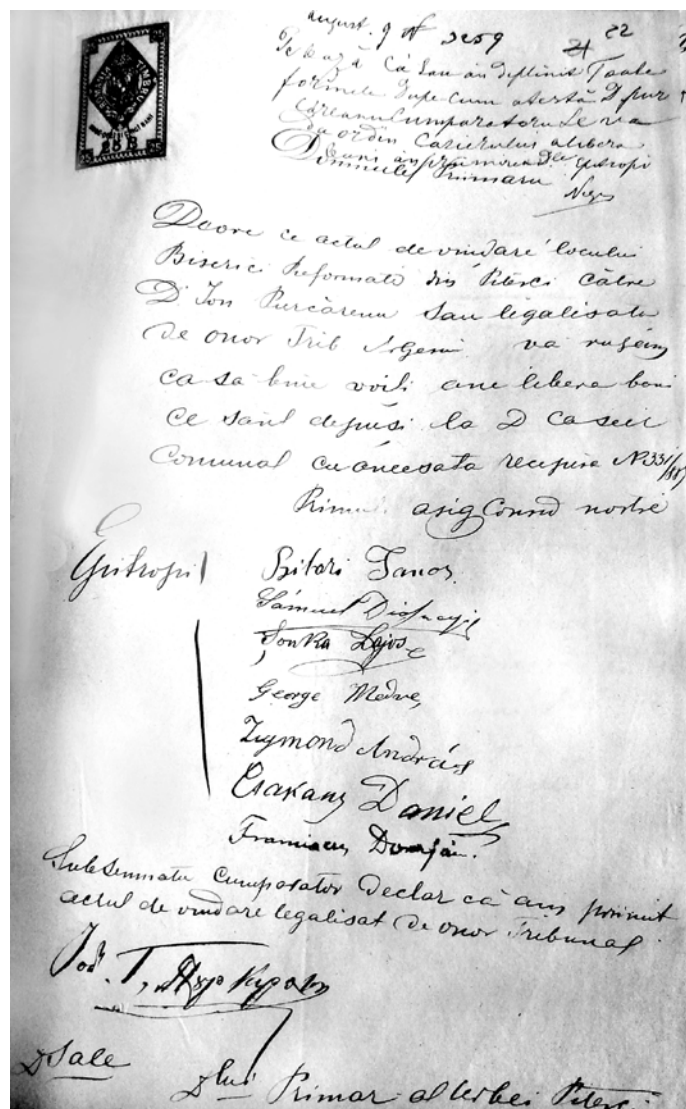 August. 9 No 3259
22
Pe bază că sau îndeplinit Toate
formele dupe cum atestă D Pur
căreanu Cumparatoru Se va
da ordin Casierului a libera
bani
Primaru
TIMBRU
25 B
25 25
Domnule
Deore ce actul de vindare locului
Biserici Reformate din Pitesci către
D Ion Purcărenu sau legalisatu
de onor Trib Argesiu va rugăm
ca să bine voiti ane libera bani
ce sânt depuși la D Caseir
Comunal cu anecsata recepisa No 331/88
Primiti asig Consid nostre
Epitropii
Bitori Janos
Sámuel
Jonka Lajos
George Medve,
Zsymond András
Csakany Daniel
Domján.
Subsemnatu Cumparator Declar că am primit
actul de vindare legalisat de onor Tribunal.
D Sale
D lui Primar al Urbei Pitesci.